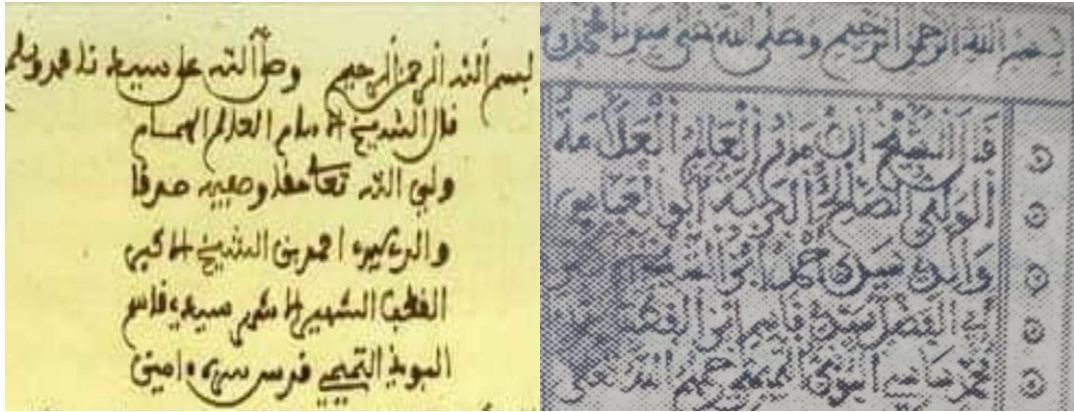 بسم الله الرحمن الرحيم وصلى الله على سيدنا محمد وسلم
قال الشيخ الامام العالم الهمام
ولي الله تعالى حقا وصفيه صدقا
والدي سيدي احمد بن الشيخ الاكبر
القطب الشهير الاشهر سيدي قاسم
البوني التميمي قدس سره امين
بسم الله الرحمن الرحيم وصلى الله على سيدنا محمد
قال الشيخ الامام العالم العلامة
الولي الصالح البركة ابو العباس
والدي سيدي احمد ابن الشيخ
ابي الفضل سيدي قاسم ابن الفقيه
محمد ساسي البوني التميمي رحمهم الله تعالى